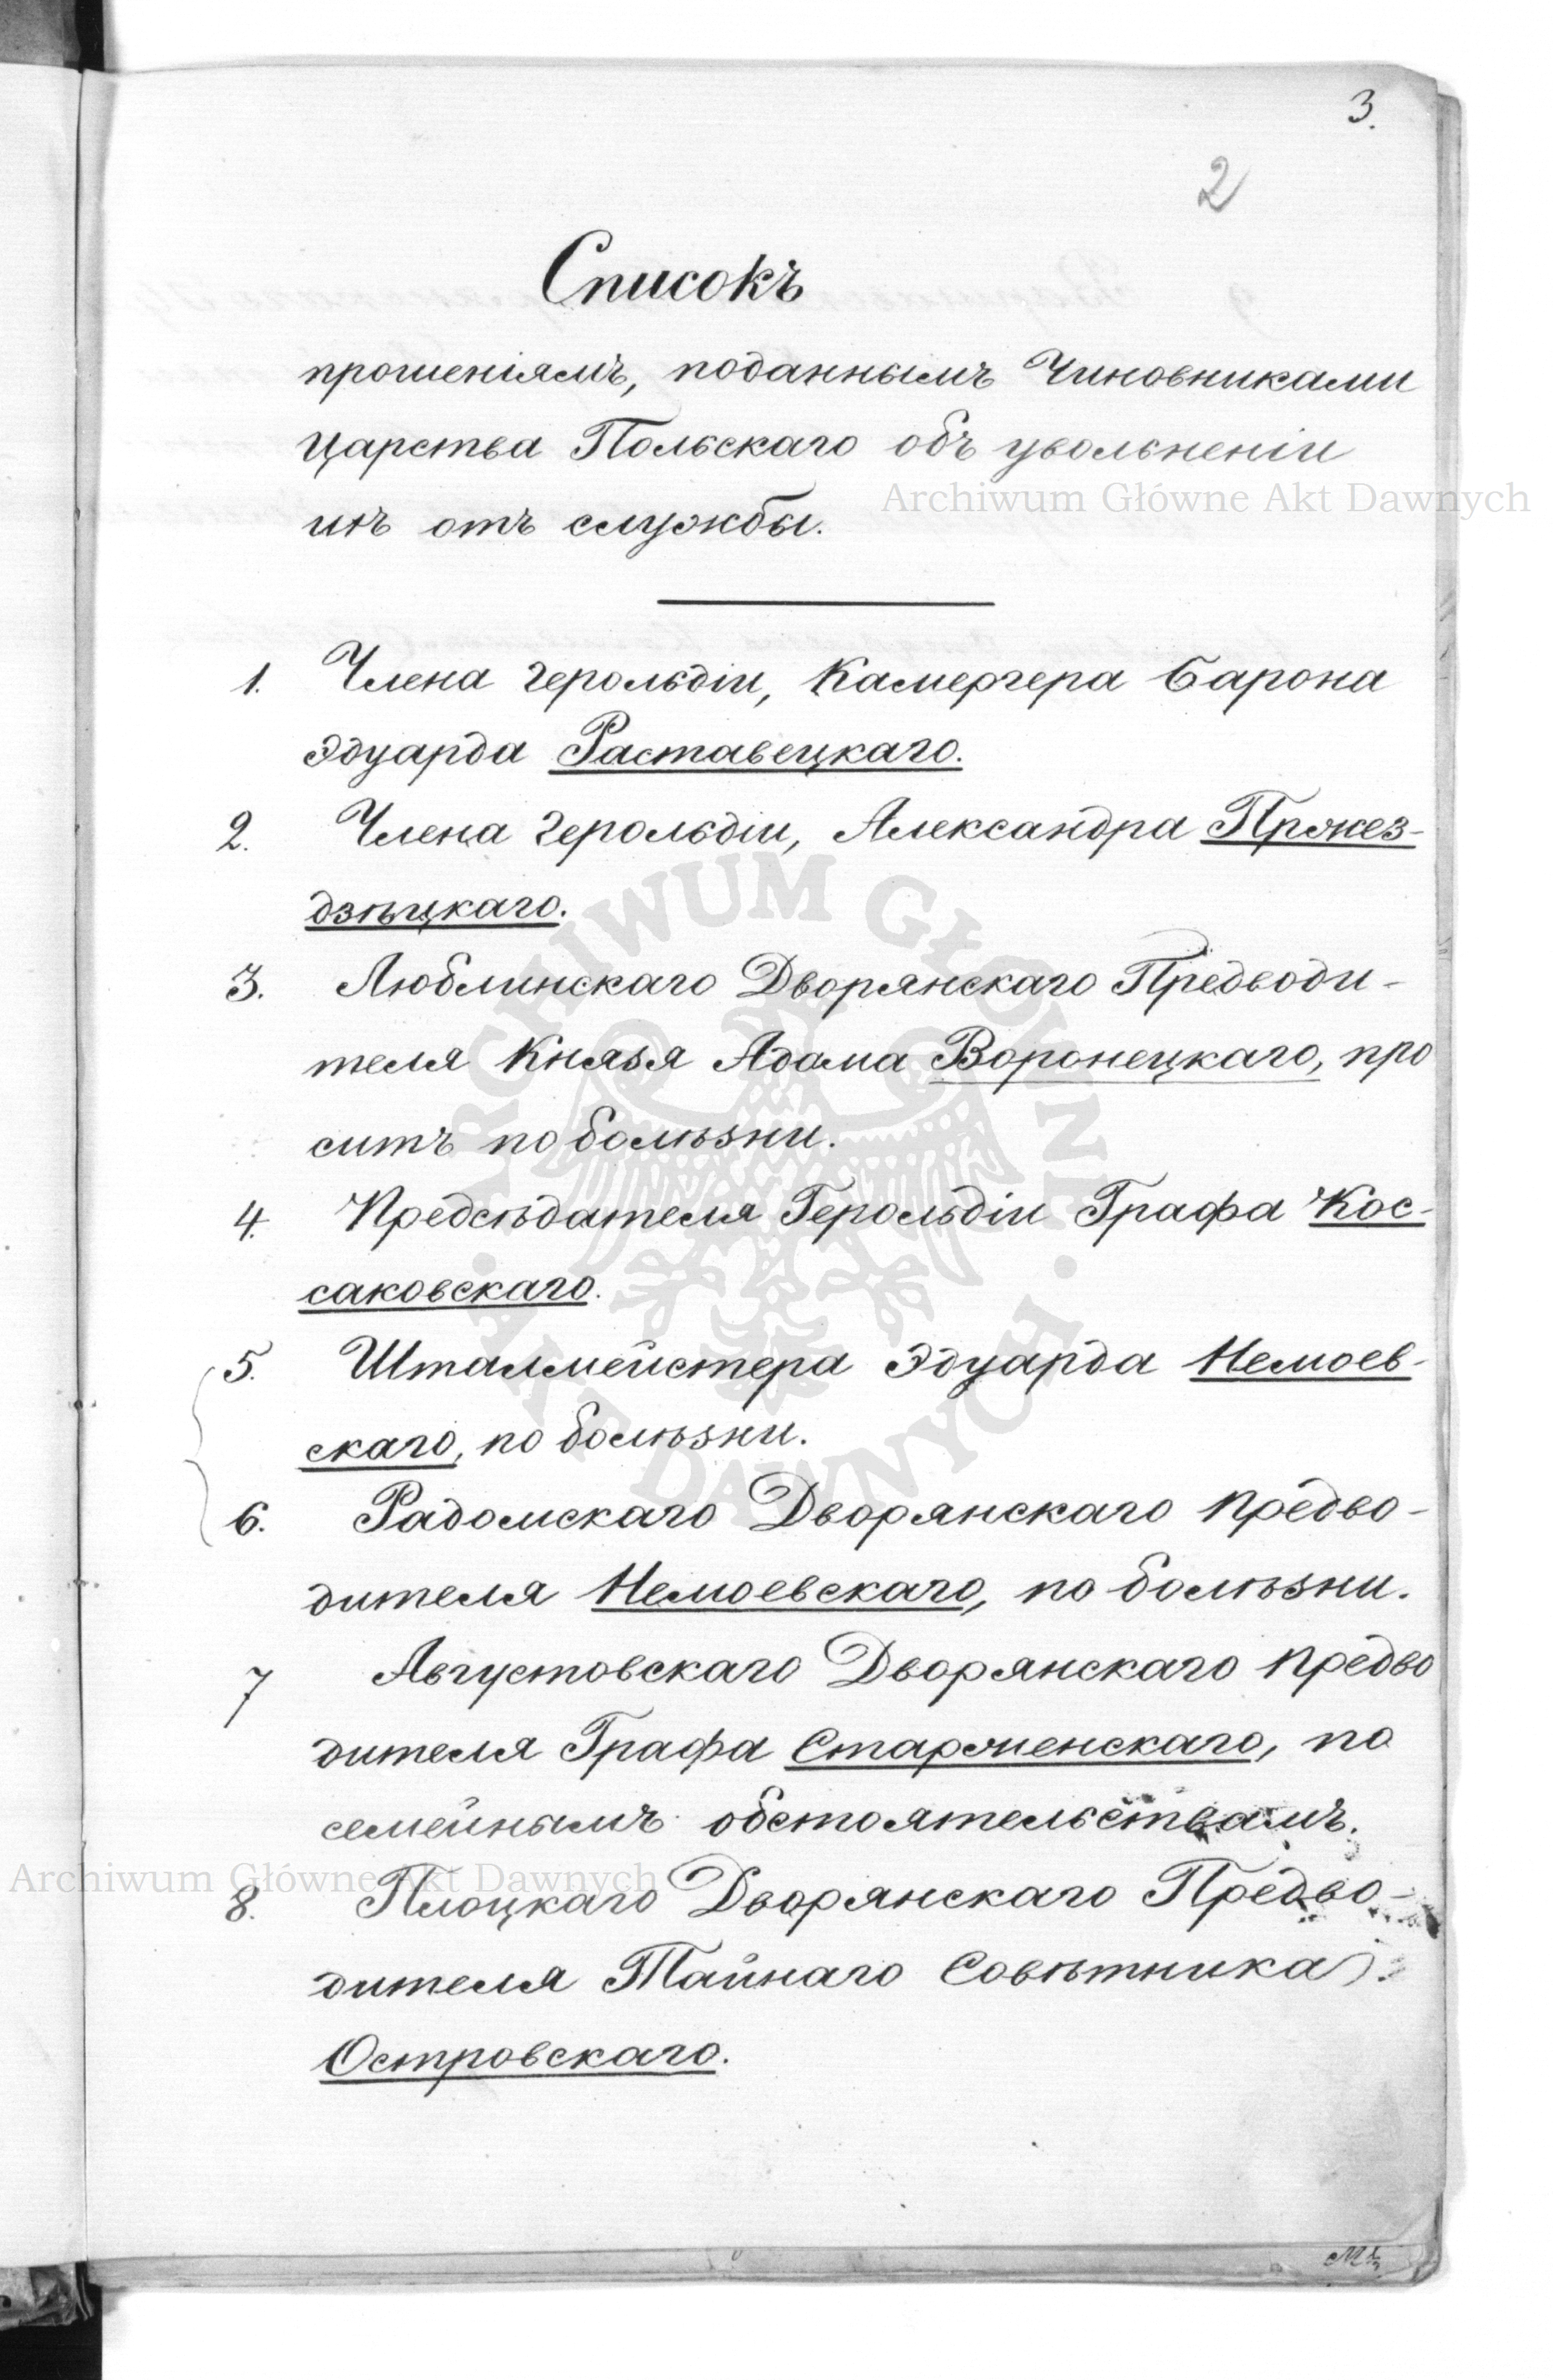 3.
2
Списокъ
прошеніямъ, поданнымъ Чиновниками
Царства Польскаго объ увольненіи
ихъ отъ службы.
1. Члена Герольдіи, Камергера Барона
Эдуарда Раставецкаго.
2. Члена Герольдіи, Александра Пржез-
дзѣцкаго.
3. Люблинскаго Дворянскаго Предводи-
теля Князя Адама Воронецкаго, про
ситъ по болѣзни.
4. Предсѣдателя Герольдіи Графа Кос-
саковскаго.
5. Шталмейстера Эдуарда Немоев-
скаго, по болѣзни.
6. Радомскаго Дворянскаго Предво-
дителя Немоевскаго, по болѣзни.
7 Августовскаго Дворянскаго Предво
дителя Графа Старженскаго, по
семейнымъ обстоятельствамъ.
8. Плоцкаго Дворянскаго Предво-
дителя Тайнаго Совѣтника
Островскаго.
Archiwum Główne Akt Dawnych
ARCHIWUM GŁÓWNE
AKT DAWNYCH
Archiwum Główne Akt Dawnych